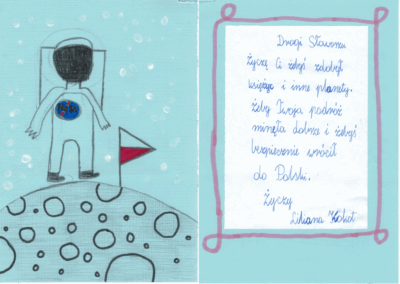 Drogi Sławoszu
Życzę Ci żebyś zdobył
księżyc i inne planety.
Żeby Twoja podróż
minęła dobrze i żebyś
bezpiecznie wrócił
do Polski.
Życzy
Liliana